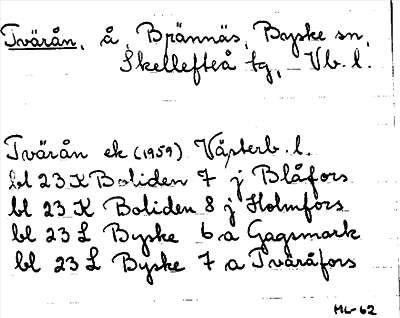 Tvärån, å, Brännäs, Byske sn,
Skellefteå tg, Vb. l.
Tvärån ek (1959) Västerb. l.
bl 23 K Boliden 7 j Blåfors
bl 23 K Boliden 8 j Holmfors
bl 23 L Byske 6 a Gagsmark
bl 23 L Byske 7 a Tväråfors
ML-62